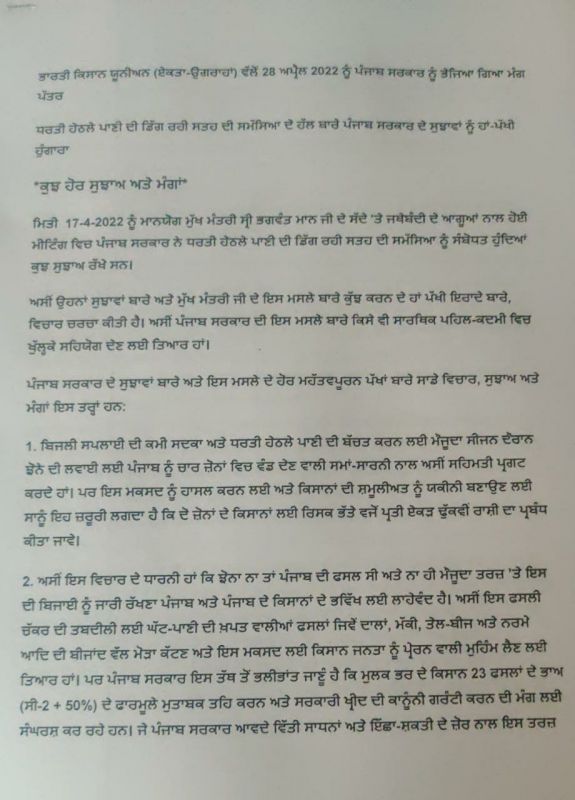 ਭਾਰਤੀ ਕਿਸਾਨ ਯੂਨੀਅਨ (ਏਕਤਾ-ਉਗਰਾਹਾਂ) ਵੱਲੋਂ 28 ਅਪ੍ਰੈਲ 2022 ਨੂੰ ਪੰਜਾਬ ਸਰਕਾਰ ਨੂੰ ਭੇਜਿਆ ਗਿਆ ਮੰਗ
ਪੱਤਰ
ਧਰਤੀ ਹੇਠਲੇ ਪਾਣੀ ਦੀ ਡਿੱਗ ਰਹੀ ਸਤਹ ਦੀ ਸਮੱਸਿਆ ਦੇ ਹੱਲ ਬਾਰੇ ਪੰਜਾਬ ਸਰਕਾਰ ਦੇ ਸੁਝਾਵਾਂ ਨੂੰ ਹਾਂ-ਪੱਖੀ
ਹੁੰਗਾਰਾ
*ਕੁਝ ਹੋਰ ਸੁਝਾਅ ਅਤੇ ਮੰਗਾਂ*
ਮਿਤੀ 17-4-2022 ਨੂੰ ਮਾਨਯੋਗ ਮੁੱਖ ਮੰਤਰੀ ਸ੍ਰੀ ਭਗਵੰਤ ਮਾਨ ਜੀ ਦੇ ਸੱਦੇ 'ਤੇ ਜਥੇਬੰਦੀ ਦੇ ਆਗੂਆਂ ਨਾਲ ਹੋਈ
ਮੀਟਿੰਗ ਵਿਚ ਪੰਜਾਬ ਸਰਕਾਰ ਨੇ ਧਰਤੀ ਹੇਠਲੇ ਪਾਣੀ ਦੀ ਡਿੱਗ ਰਹੀ ਸਤਹ ਦੀ ਸਮੱਸਿਆ ਨੂੰ ਸੰਬੋਧਤ ਹੁੰਦਿਆਂ
ਕੁਝ ਸੁਝਾਅ ਰੱਖੇ ਸਨ।
ਅਸੀਂ ਉਹਨਾਂ ਸੁਝਾਵਾਂ ਬਾਰੇ ਅਤੇ ਮੁੱਖ ਮੰਤਰੀ ਜੀ ਦੇ ਇਸ ਮਸਲੇ ਬਾਰੇ ਕੁੱਝ ਕਰਨ ਦੇ ਹਾਂ ਪੱਖੀ ਇਰਾਦੇ ਬਾਰੇ,
ਵਿਚਾਰ ਚਰਚਾ ਕੀਤੀ ਹੈ। ਅਸੀਂ ਪੰਜਾਬ ਸਰਕਾਰ ਦੀ ਇਸ ਮਸਲੇ ਬਾਰੇ ਕਿਸੇ ਵੀ ਸਾਰਥਿਕ ਪਹਿਲ-ਕਦਮੀ ਵਿਚ
ਖੁੱਲ੍ਹਕੇ ਸਹਿਯੋਗ ਦੇਣ ਲਈ ਤਿਆਰ ਹਾਂ।
ਪੰਜਾਬ ਸਰਕਾਰ ਦੇ ਸੁਝਾਵਾਂ ਬਾਰੇ ਅਤੇ ਇਸ ਮਸਲੇ ਦੇ ਹੋਰ ਮਹੱਤਵਪੂਰਨ ਪੱਖਾਂ ਬਾਰੇ ਸਾਡੇ ਵਿਚਾਰ, ਸੁਝਾਅ ਅਤੇ
ਮੰਗਾਂ ਇਸ ਤਰ੍ਹਾਂ ਹਨ:
1. ਬਿਜਲੀ ਸਪਲਾਈ ਦੀ ਕਮੀ ਸਦਕਾ ਅਤੇ ਧਰਤੀ ਹੇਠਲੇ ਪਾਣੀ ਦੀ ਬੱਚਤ ਕਰਨ ਲਈ ਮੌਜੂਦਾ ਸੀਜਨ ਦੌਰਾਨ
ਝੋਨੇ ਦੀ ਲਵਾਈ ਲਈ ਪੰਜਾਬ ਨੂੰ ਚਾਰ ਜ਼ੋਨਾਂ ਵਿਚ ਵੰਡ ਦੇਣ ਵਾਲੀ ਸਮਾਂ-ਸਾਰਨੀ ਨਾਲ ਅਸੀਂ ਸਹਿਮਤੀ ਪ੍ਰਗਟ
ਕਰਦੇ ਹਾਂ। ਪਰ ਇਸ ਮਕਸਦ ਨੂੰ ਹਾਸਲ ਕਰਨ ਲਈ ਅਤੇ ਕਿਸਾਨਾਂ ਦੀ ਸ਼ਮੂਲੀਅਤ ਨੂੰ ਯਕੀਨੀ ਬਣਾਉਣ ਲਈ
ਸਾਨੂੰ ਇਹ ਜ਼ਰੂਰੀ ਲਗਦਾ ਹੈ ਕਿ ਦੋ ਜ਼ੋਨਾਂ ਦੇ ਕਿਸਾਨਾਂ ਲਈ ਰਿਸਕ ਭੱਤੇ ਵਜੋਂ ਪ੍ਰਤੀ ਏਕੜ ਢੁੱਕਵੀਂ ਰਾਸ਼ੀ ਦਾ ਪ੍ਰਬੰਧ
ਕੀਤਾ ਜਾਵੇ।
2. ਅਸੀਂ ਇਸ ਵਿਚਾਰ ਦੇ ਧਾਰਨੀ ਹਾਂ ਕਿ ਝੋਨਾ ਨਾ ਤਾਂ ਪੰਜਾਬ ਦੀ ਫਸਲ ਸੀ ਅਤੇ ਨਾ ਹੀ ਮੌਜੂਦਾ ਤਰਜ਼ 'ਤੇ ਇਸ
ਦੀ ਬਿਜਾਈ ਨੂੰ ਜਾਰੀ ਰੱਖਣਾ ਪੰਜਾਬ ਅਤੇ ਪੰਜਾਬ ਦੇ ਕਿਸਾਨਾਂ ਦੇ ਭਵਿੱਖ ਲਈ ਲਾਹੇਵੰਦ ਹੈ। ਅਸੀਂ ਇਸ ਫਸਲੀ
ਚੱਕਰ ਦੀ ਤਬਦੀਲੀ ਲਈ ਘੱਟ-ਪਾਣੀ ਦੀ ਖ਼ਪਤ ਵਾਲੀਆਂ ਫਸਲਾਂ ਜਿਵੇਂ ਦਾਲਾਂ, ਮੱਕੀ, ਤੇਲ-ਬੀਜ ਅਤੇ ਨਰਮੇ
ਆਦਿ ਦੀ ਬੀਜਾਂਦ ਵੱਲ ਮੋੜਾ ਕੱਟਣ ਅਤੇ ਇਸ ਮਕਸਦ ਲਈ ਕਿਸਾਨ ਜਨਤਾ ਨੂੰ ਪ੍ਰੇਰਨ ਵਾਲੀ ਮੁਹਿੰਮ ਲੈਣ ਲਈ
ਤਿਆਰ ਹਾਂ। ਪਰ ਪੰਜਾਬ ਸਰਕਾਰ ਇਸ ਤੱਥ ਤੋਂ ਭਲੀਭਾਂਤ ਜਾਣੂੰ ਹੈ ਕਿ ਮੁਲਕ ਭਰ ਦੇ ਕਿਸਾਨ 23 ਫਸਲਾਂ ਦੇ ਭਾਅ
(ਸੀ-2 + 50%) ਦੇ ਫਾਰਮੂਲੇ ਮੁਤਾਬਕ ਤਹਿ ਕਰਨ ਅਤੇ ਸਰਕਾਰੀ ਖ੍ਰੀਦ ਦੀ ਕਾਨੂੰਨੀ ਗਰੰਟੀ ਕਰਨ ਦੀ ਮੰਗ ਲਈ
ਸੰਘਰਸ਼ ਕਰ ਰਹੇ ਹਨ। ਜੇ ਪੰਜਾਬ ਸਰਕਾਰ ਆਵਦੇ ਵਿੱਤੀ ਸਾਧਨਾਂ ਅਤੇ ਇੱਛਾ-ਸ਼ਕਤੀ ਦੇ ਜ਼ੋਰ ਨਾਲ ਇਸ ਤਰਜ਼